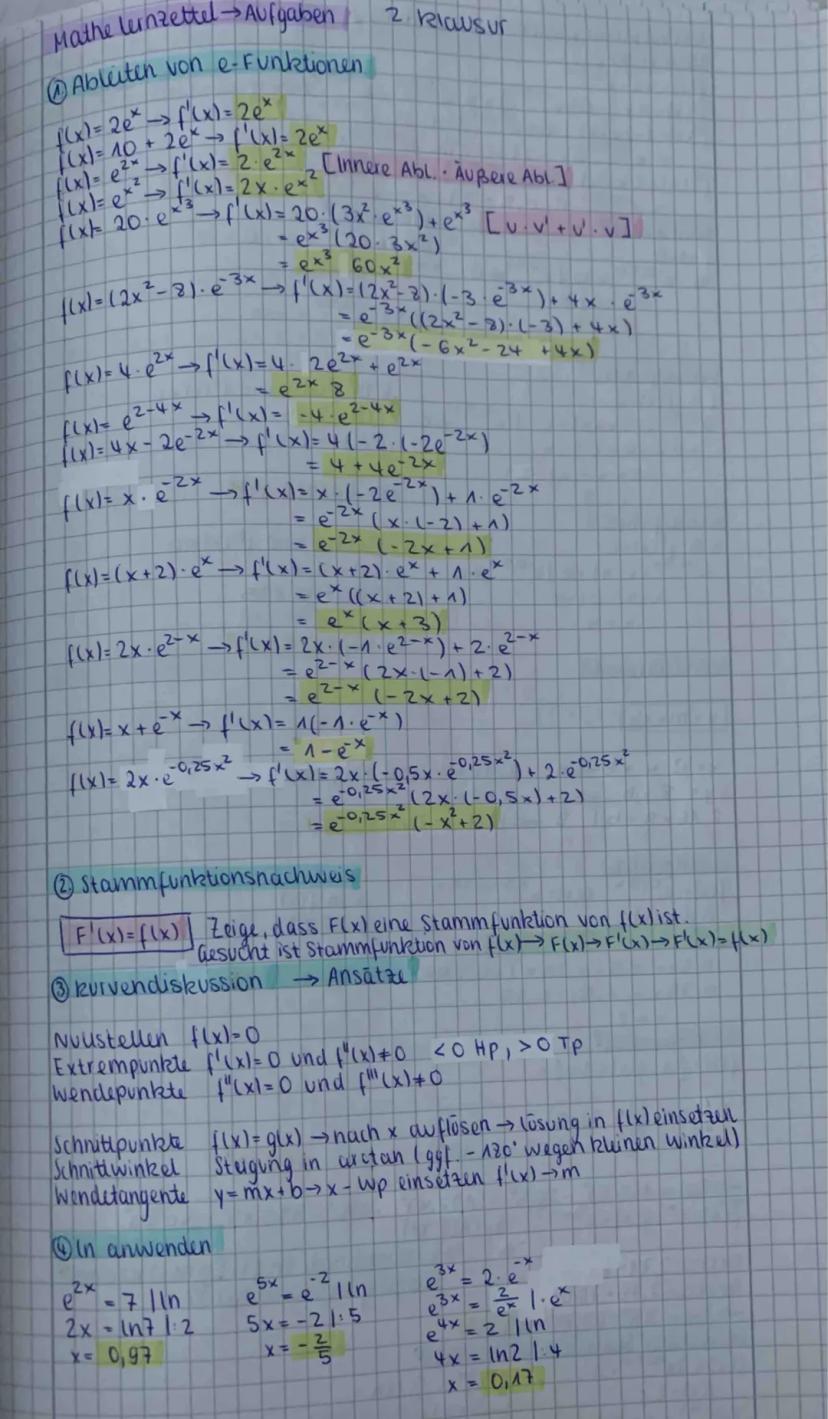 Mathe Lernzettel → Aufgaben 2. Klausur
① Ableiten von e-Funktionen
f(x)= 2eˣ → f'(x)= 2eˣ
f(x)= 10 + 2eˣ → f'(x)= 2eˣ
f(x)= e²ˣ → f'(x)= 2·e²ˣ [Innere Abl. · Äußere Abl.]
f(x)= e^x² → f'(x)= 2x·e^x²
f(x)= 20·e^x³ → f'(x)= 20·(3x²·e^x³)+e^x³ [u·v'+u'·v]
= e^x³ (20·3x²)
= e^x³ 60x²
f(x)=(2x²-8)·e^-3x → f'(x)=(2x²-8)·(-3·e^-3x)+4x·e^-3x
= e^-3x ((2x²-8)·(-3)+4x)
= e^-3x (-6x²-24 +4x)
f(x)= 4·e^2x → f'(x)= 4·2e^2x + e^2x
= e^2x 8
f(x)= e^2-4x → f'(x)= -4·e^2-4x
f(x)= 4x - 2e^-2x → f'(x)= 4(-2·(-2e^-2x)
= 4+4e^-2x
f(x)= x·e^-2x → f'(x)= x·(-2e^-2x)+1·e^-2x
= e^-2x (x·(-2)+1)
= e^-2x (-2x+1)
f(x)=(x+2)·eˣ → f'(x)=(x+2)·eˣ + 1·eˣ
= eˣ((x+2)+1)
= eˣ(x+3)
f(x)= 2x·e^2-x → f'(x)= 2x·(-1·e^2-x)+2·e^2-x
= e^2-x (2x·(-1)+2)
= e^2-x (-2x+2)
f(x)= x+e^-x → f'(x)= 1(-1·e^-x)
= 1-e^-x
f(x)= 2x·e^-0,25x² → f'(x)= 2x·(-0,5x·e^-0,25x²)+2·e^-0,25x²
= e^-0,25x² (2x·(-0,5x)+2)
= e^-0,25x² (-x²+2)
② Stammfunktionsnachweis
F'(x)=f(x) Zeige, dass F(x) eine Stammfunktion von f(x) ist.
Gesucht ist Stammfunktion von f(x)→F(x)→F'(x)→F'(x)=f(x)
③ Kurvendiskussion → Ansätze
Nullstellen f(x)=0
Extrempunkte f'(x)=0 und f''(x)≠0 <0 HP, >0 TP
Wendepunkte f''(x)=0 und f'''(x)≠0
Schnittpunkte f(x)=g(x) → nach x auflösen → Lösung in f(x) einsetzen
Schnittwinkel Steigung in arctan (ggf. -180° wegen kleinen Winkel)
Wendetangente y=mx+b → x-Wp einsetzen f'(x)→m
④ ln anwenden
e^2x = 7 |ln
2x = ln7 |:2
x= 0,97
e^5x = e^-2 |ln
5x = -2 |:5
x = -2/5
e^3x = 2·e^-x
e^3x = 2/eˣ |·eˣ
e^4x = 2 |ln
4x = ln2 |:4
x = 0,17